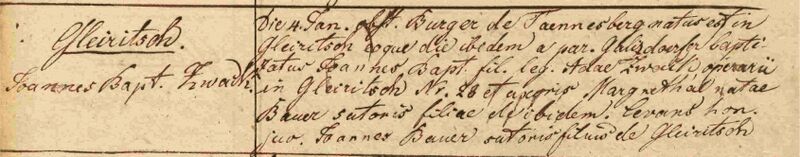 Gleiritsch.
Joannes Bapt. Zwack.
Die 4. Jan. obst. Burger de Taennesberg natus est in
Gleiritsch eoque die ibidem a par. bapti-
zatus Joannes Bapt. fil. leg. Adae Zwack operarii
in Gleiritsch Nr. 28 et uxoris Margretha natae
Bauer sutoris filiae de ibidem. Levans hon.
juv. Joannes Bauer sutoris filius de Gleiritsch